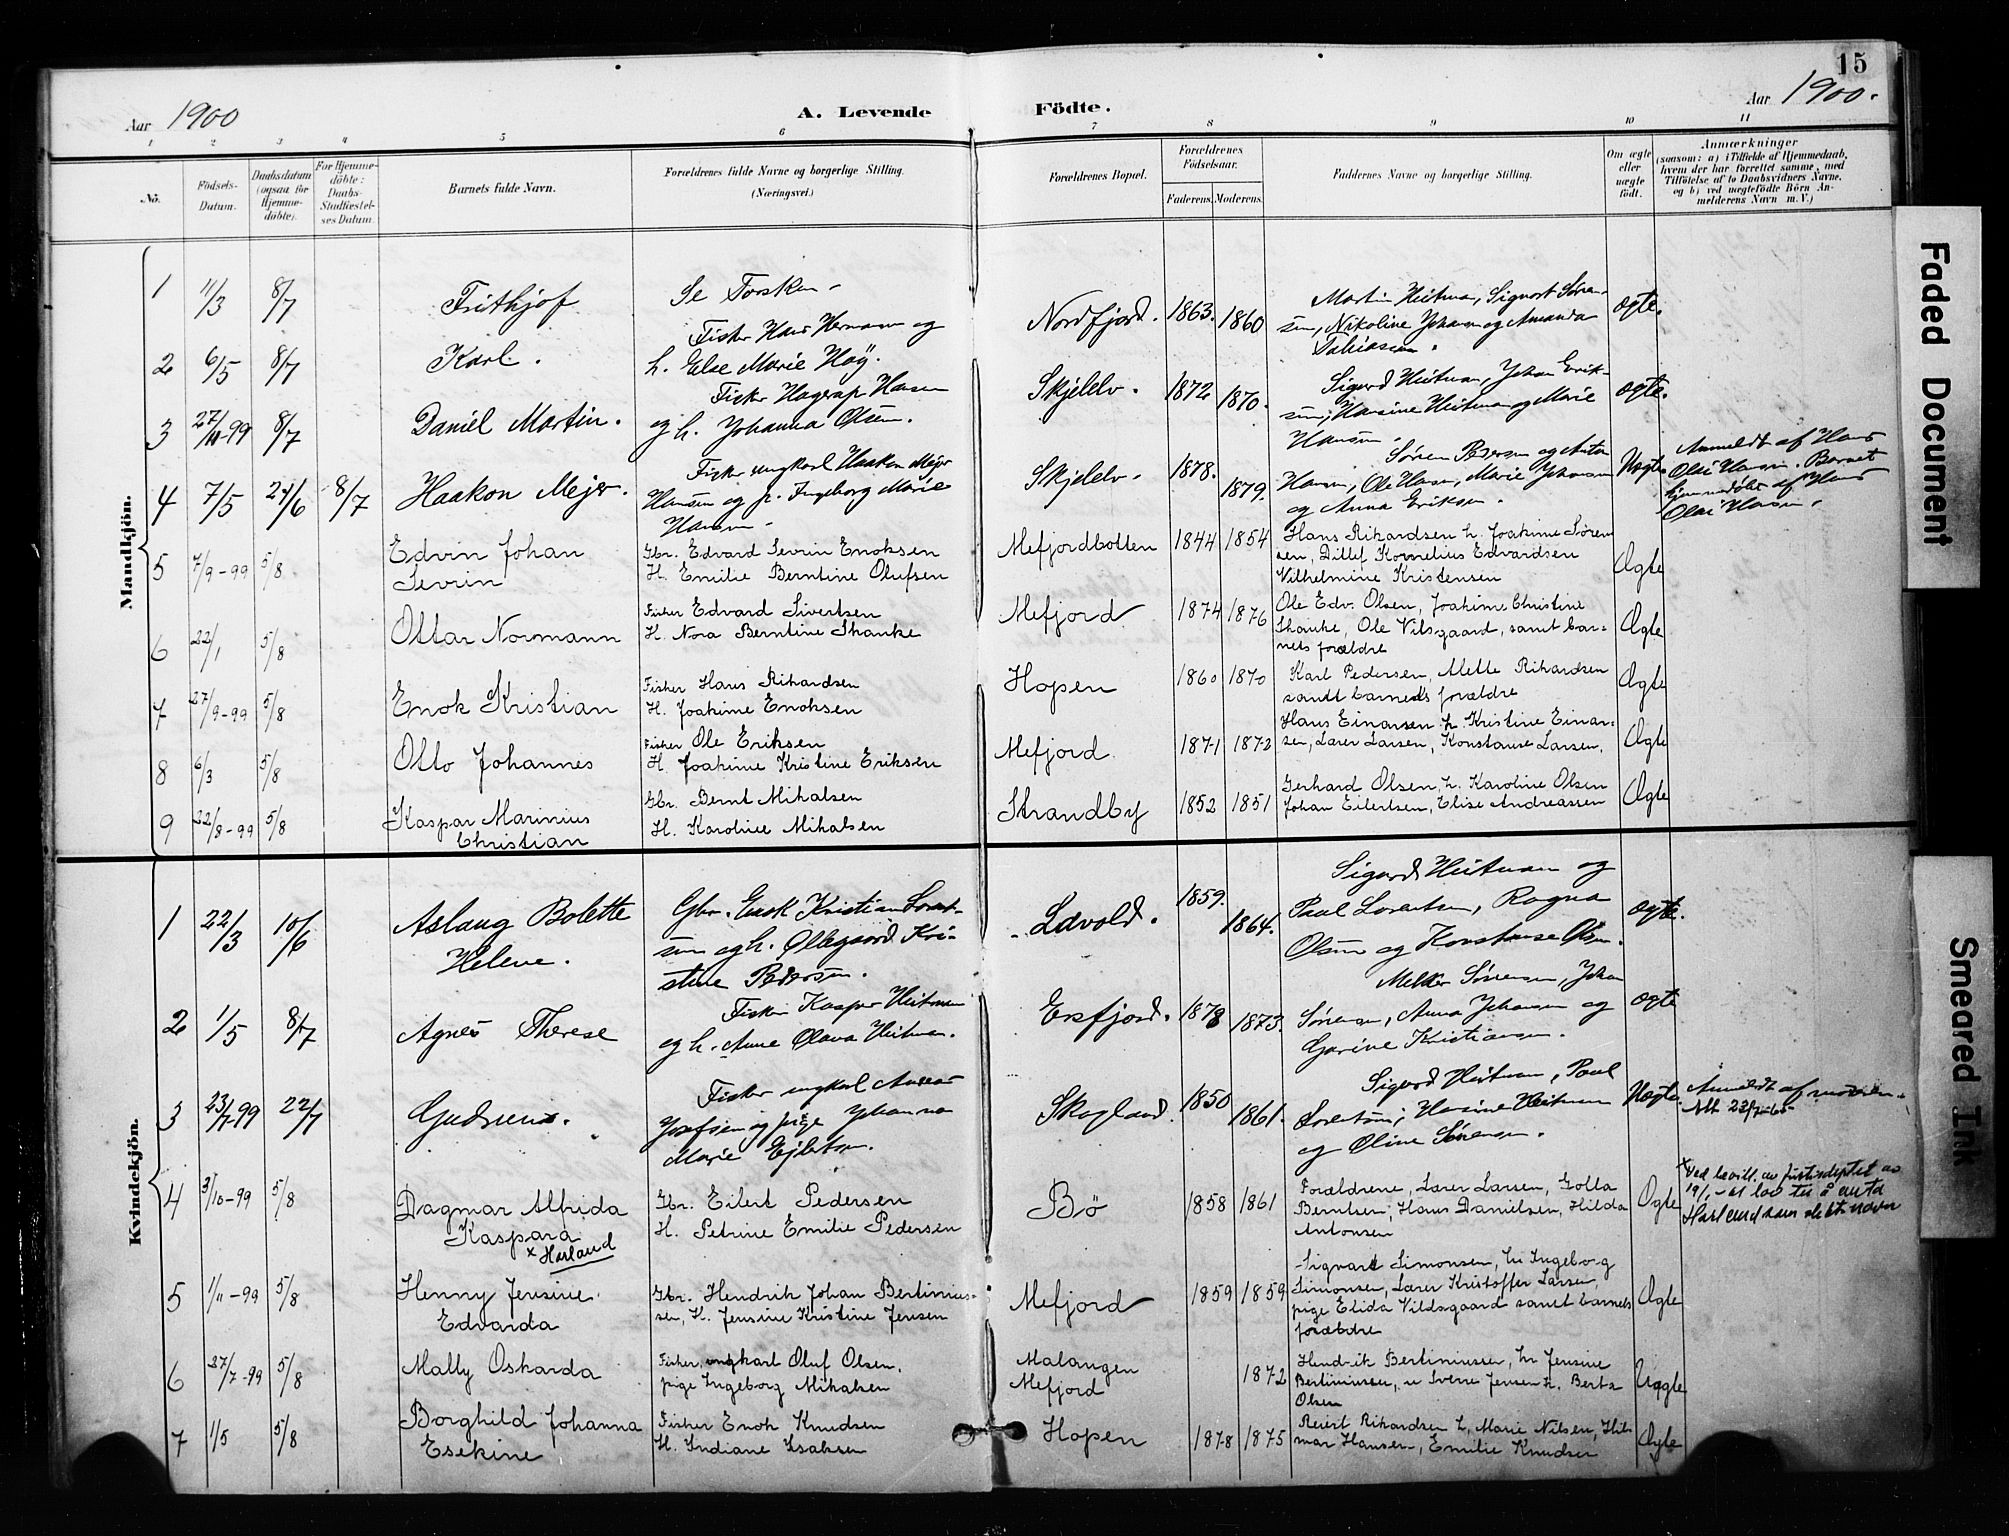 15
Aar 1900
A. Levende Födte.
Aar 1900.
1 2 3 4 5 6 7 8 9 10 11
No.
Födsels-Datum.
Daabsdatum (ogsaa for Hjemme-döbte).
For Hjemme-döbte: Daabs-Stadfæstel-ses Datum.
Barnets fulde Navn.
Forældrenes fulde Navne og borgerlige Stilling. (Næringsvei.)
Forældrenes Bopæl.
Forældrenes Födselsaar.
Faderens. Moderens.
Faddernes Navne og borgerlige Stilling.
Om ægte eller uægte født.
Anmærkninger
(saasom: a) i Tilfælde af Hjemmedaab, hvem der har forrettet samme, med Tilföielse af to Daabsvidners Navne, og b) ved uægtefödte Börn An-melderens Navn m. V.)
Mandkjön.
1 1/3 8/7 Frithjof Se Torsken - Nordfjord. 1863. 1860 Martin Heitman, Sigvart Søren-
sen, Nikoline Johansen og Amanda
Tobiassen. ægte.
2 6/5 8/7 Karl. Fisker Hans Hermann og
h. Else Marie Høy. Skjelelv. 1872 1870. Sigurd Heitman, Johan Erik-
sen, Hansine Heitman og Marie
Hansen. ægte.
3 27/11-99 8/7 Daniel Martin. Fisker Hagerup Hansen
og h. Johanna Olsen. Skjelelv. 1878. 1879. Sören Pedersen og Anton
Hansen, Ole Hansen, Marie Johansen
og Anna Eriksen. Uægte Anmeldt af Hans
Olai Hansen. Barnet
hjemmedøbt af Hans
Olai Hansen.
4 7/5 24/6 8/7 Haakon Mejer. Fisker ungkarl Haakon Mejer
Hansen og p. Ingeborg Marie
Hansen
5 7/9-99 5/8 Edvin Johan
Sevrin Gbr. Edvard Sevrin Enoksen
H. Emilie Berntine Olufsen Mefjordbotten 1844 1854 Hans Rikardsen h. Joakime Søren
sen, Ditlef Kornelius Edvardsen
Vilhelmine Kristensen Ægte
6 22/1 5/8 Ottar Normann Fisker Edvard Sivertsen
H. Nora Berntine Skanke Mefjord 1874 1876 Ole Edv. Olsen, Joakime Christine
Skanke, Ole Vilsgaard, samt bar-
nets forældre Ægte
7 27/9-99 5/8 Enok Kristian Fisker Hans Rikardsen
H. Joakime Enoksen Hopen 1860 1870 Karl Pedersen, Mette Rikardsen
samt barnets forældre Ægte
8 6/3 5/8 Otto Johannes Fisker Ole Eriksen
H. Joakime Kristine Eriksen Mefjord 1871 1872 Hans Einarsen h. Kristine Einar-
sen, Lærer Larsen, Konstanse Larsen, Ægte
9 22/8-99 5/8 Kaspar Marinius
Christian Gbr. Bernt Mikalsen
H. Karoline Mikalsen Strandby 1852 1851 Gerhard Olsen, h. Karoline Olsen
Johan Eilertsen, Elise Andreassen Ægte
Kvindekjön.
1 22/3 10/6 Aslaug Bolette
Helene. Gbr. Enok Kristian Lorent-
sen og h. Ollegaard Kri-
stine Pedersen. Løvold. 1859. 1864. Sigurd Heitman og
Paul Lorentsen, Ragna
Olsen og Konstanse Olsen. ægte.
2 1/5 8/7 Agnes Therese Fisker Kasper Heitman
og h. Anne Olava Heitman. Ersfjord. 1878 1873. Melker Sørensen, Johan
Sørensen, Anna Johansen og
Gorine Kristiansen. ægte
3 23/7-99 22/7 Gudrun. Fisker ungkarl
Josefsen og pige Johanna
Marie Ejlertsen. Skogland. 1850 1861. Sigurd Heitman, Paul
Lorentsen, Hansine Heitman
og Oline Sørensen. Uægte Anmeldt af moderen.
4 3/10-99 5/8 Dagmar Alfrida
Kaspara
x Harland Gbr. Eilert Pedersen
H. Petrine Emilie Pedersen Bø 1858 1861 Forældrene, Lærer Larsen, Golla
Berntsen, Hans Danielsen, Hilda
Antonsen Ægte x Ved bevill. av justisdeptet av
lov til å anta
Harland som slektsnavn
5 1/11-99 5/8 Henny Jensine
Edvarda Gbr. Hendrik Johan Bertinius-
sen, H. Jensine Kristine Jensen Mefjord 1859 1859 Sigvart Simonsen, h. Ingeborg
Simonsen, Lærer Kristoffer Larsen,
pige Elida Vildsgaard samt barnets
forældre Ægte
6 27/7-99 5/8 Mally Oskarda Fisker, ungkarl Oluf Olsen,
pige Ingeborg Mikalsen Malangen
Mefjord 1872 Hendrik Bertiniussen, h. Jensine
Bertiniussen, u Sverre Jensen h. Berta
Olsen Uægte
7 1/5 5/8 Borghild Johanna
Esekine Fisker Enok Knudsen
H. Indiane Isaksen Hopen 1878 1875 Reiert Rikardsen h. Marie Nilsen, Hil-
mar Hansen, Emilie Knudsen Ægte
Faded Document
Smeared Ink